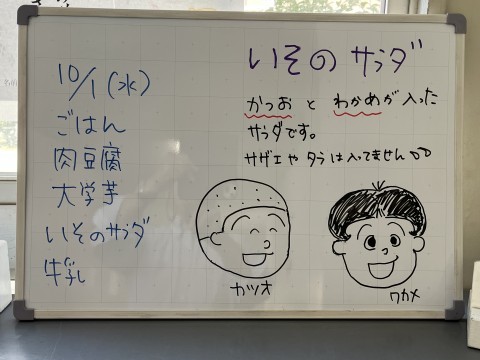 10/1(水)
ごはん
肉豆腐
大学芋
いそのサラダ
牛乳
いそのサラダ
かつおとわかめが入った
サラダです。
サザエやタラは入ってません
カツオ
ワカメ